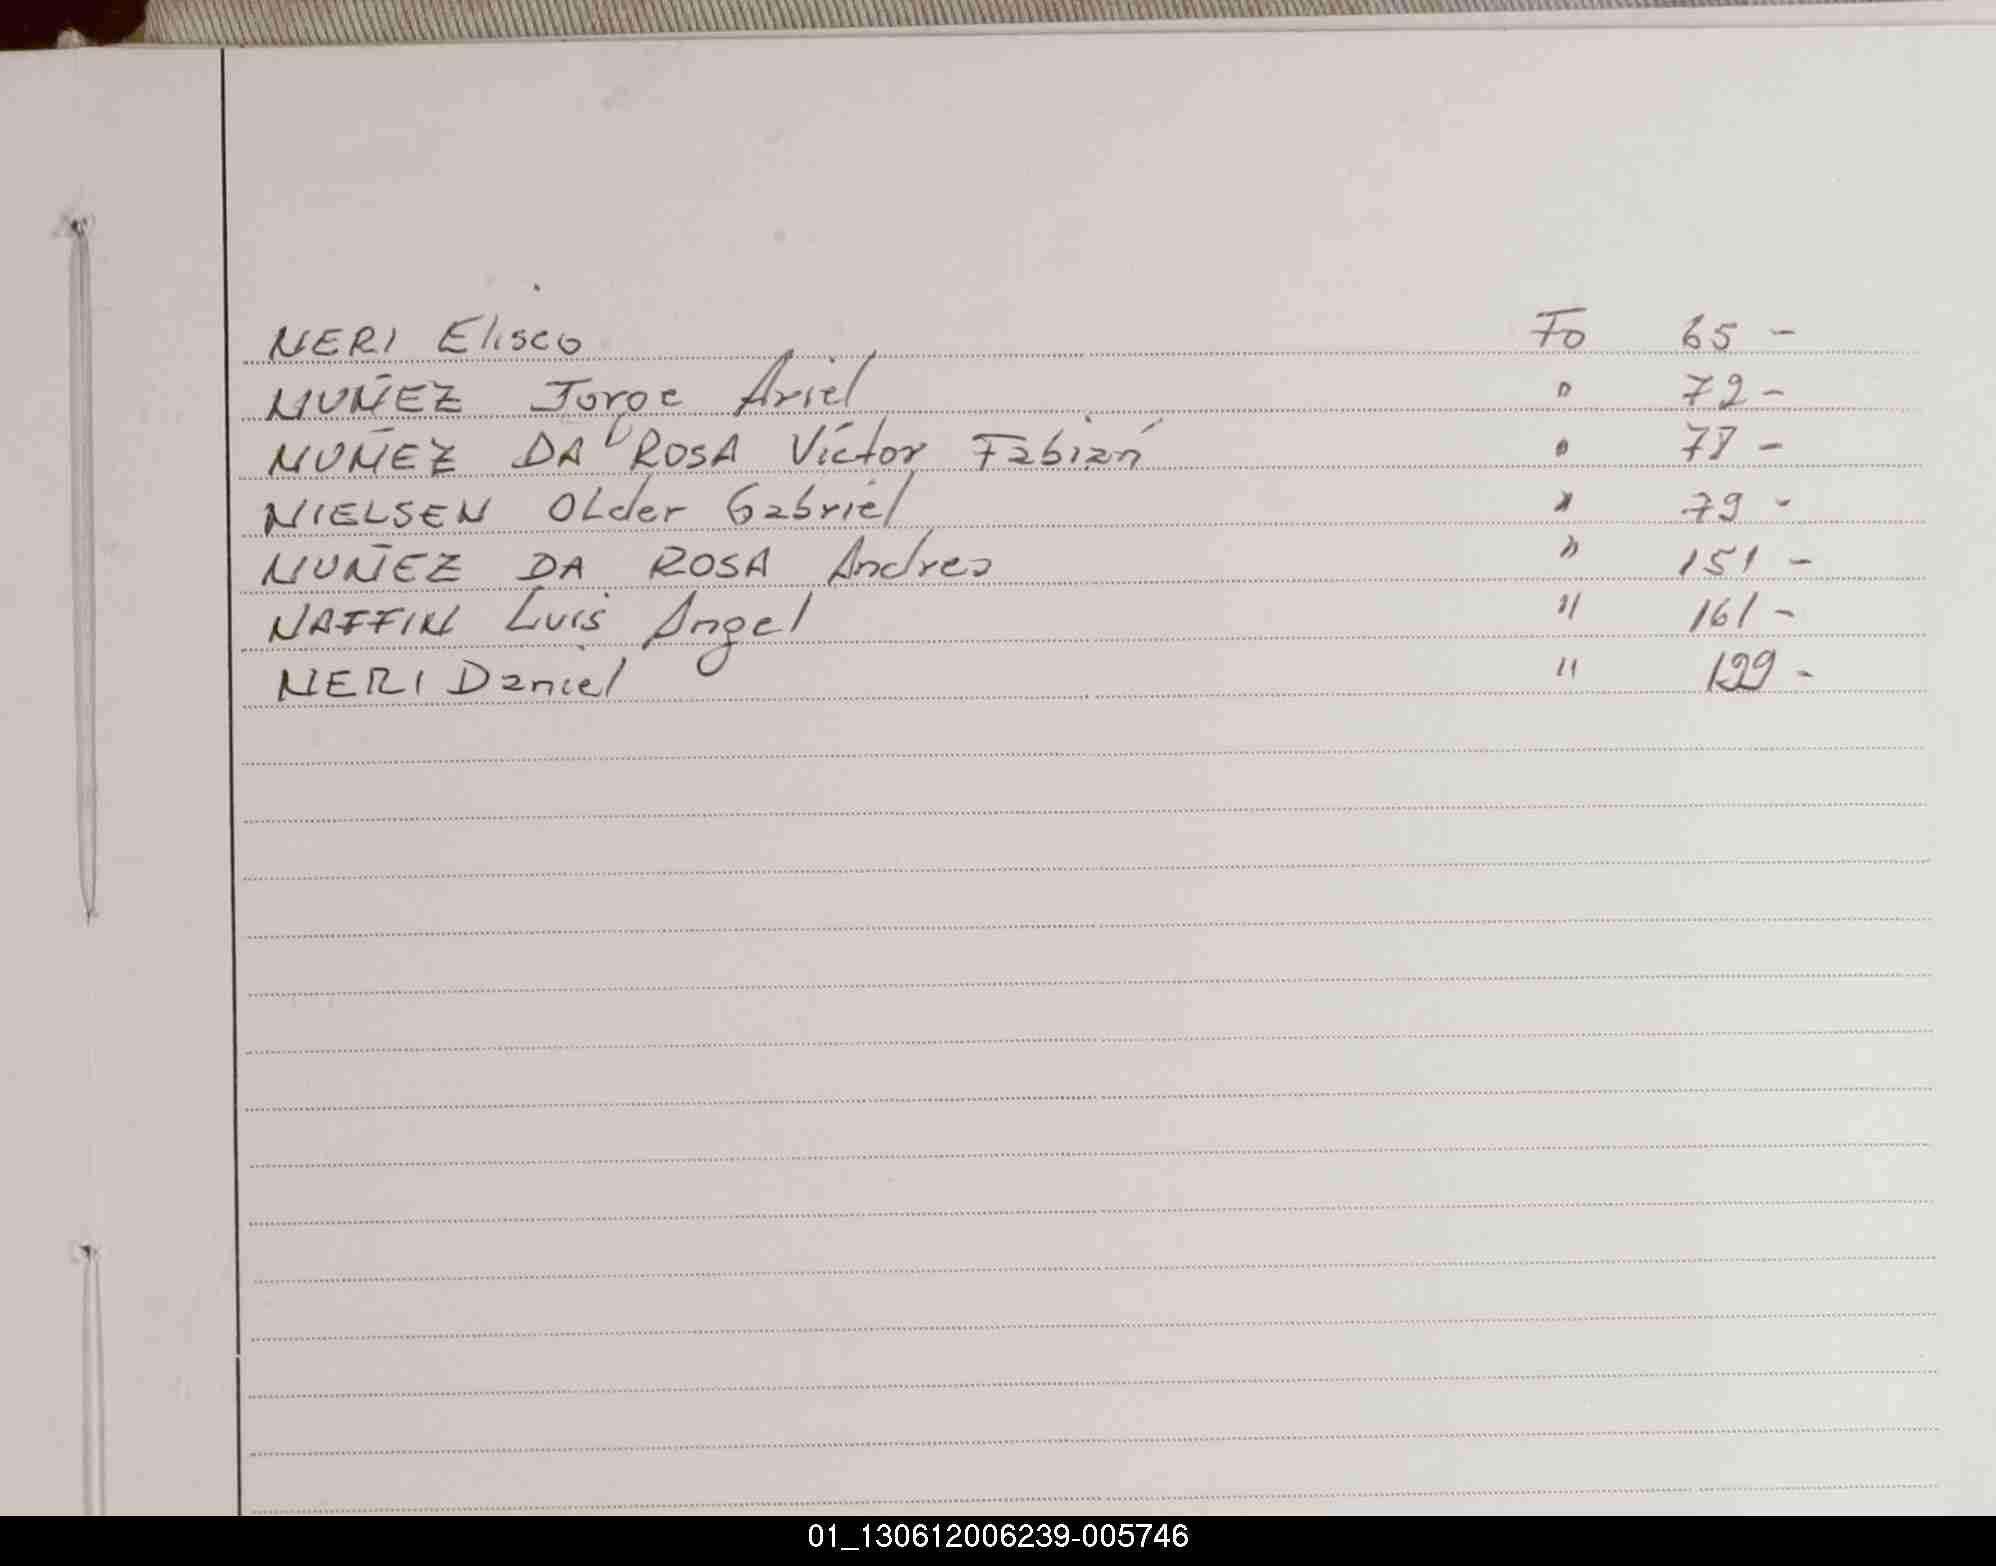 NERI Eliseo Fo 65 -
NUÑEZ Jorge Ariel " 72 -
NUÑEZ DA ROSA Víctor Fabián " 78 -
NIELSEN OLder Gabriel " 79 -
NUÑEZ DA ROSA Andres " 151 -
NAFFIN Luis Angel " 161 -
NERI Daniel " 199 -
01_130612006239-005746